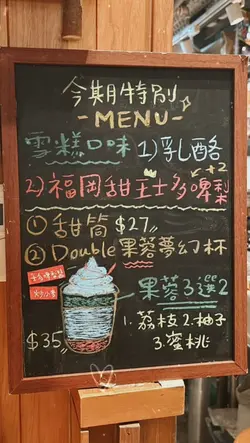 今期特別
-MENU-
雪糕口味 1)乳酪
+2
2)福岡甜王士多啤梨
① 甜筒 $27
② Double果蓉夢幻杯
果蓉3選2
1.荔枝 2.柚子
3.蜜桃
$35